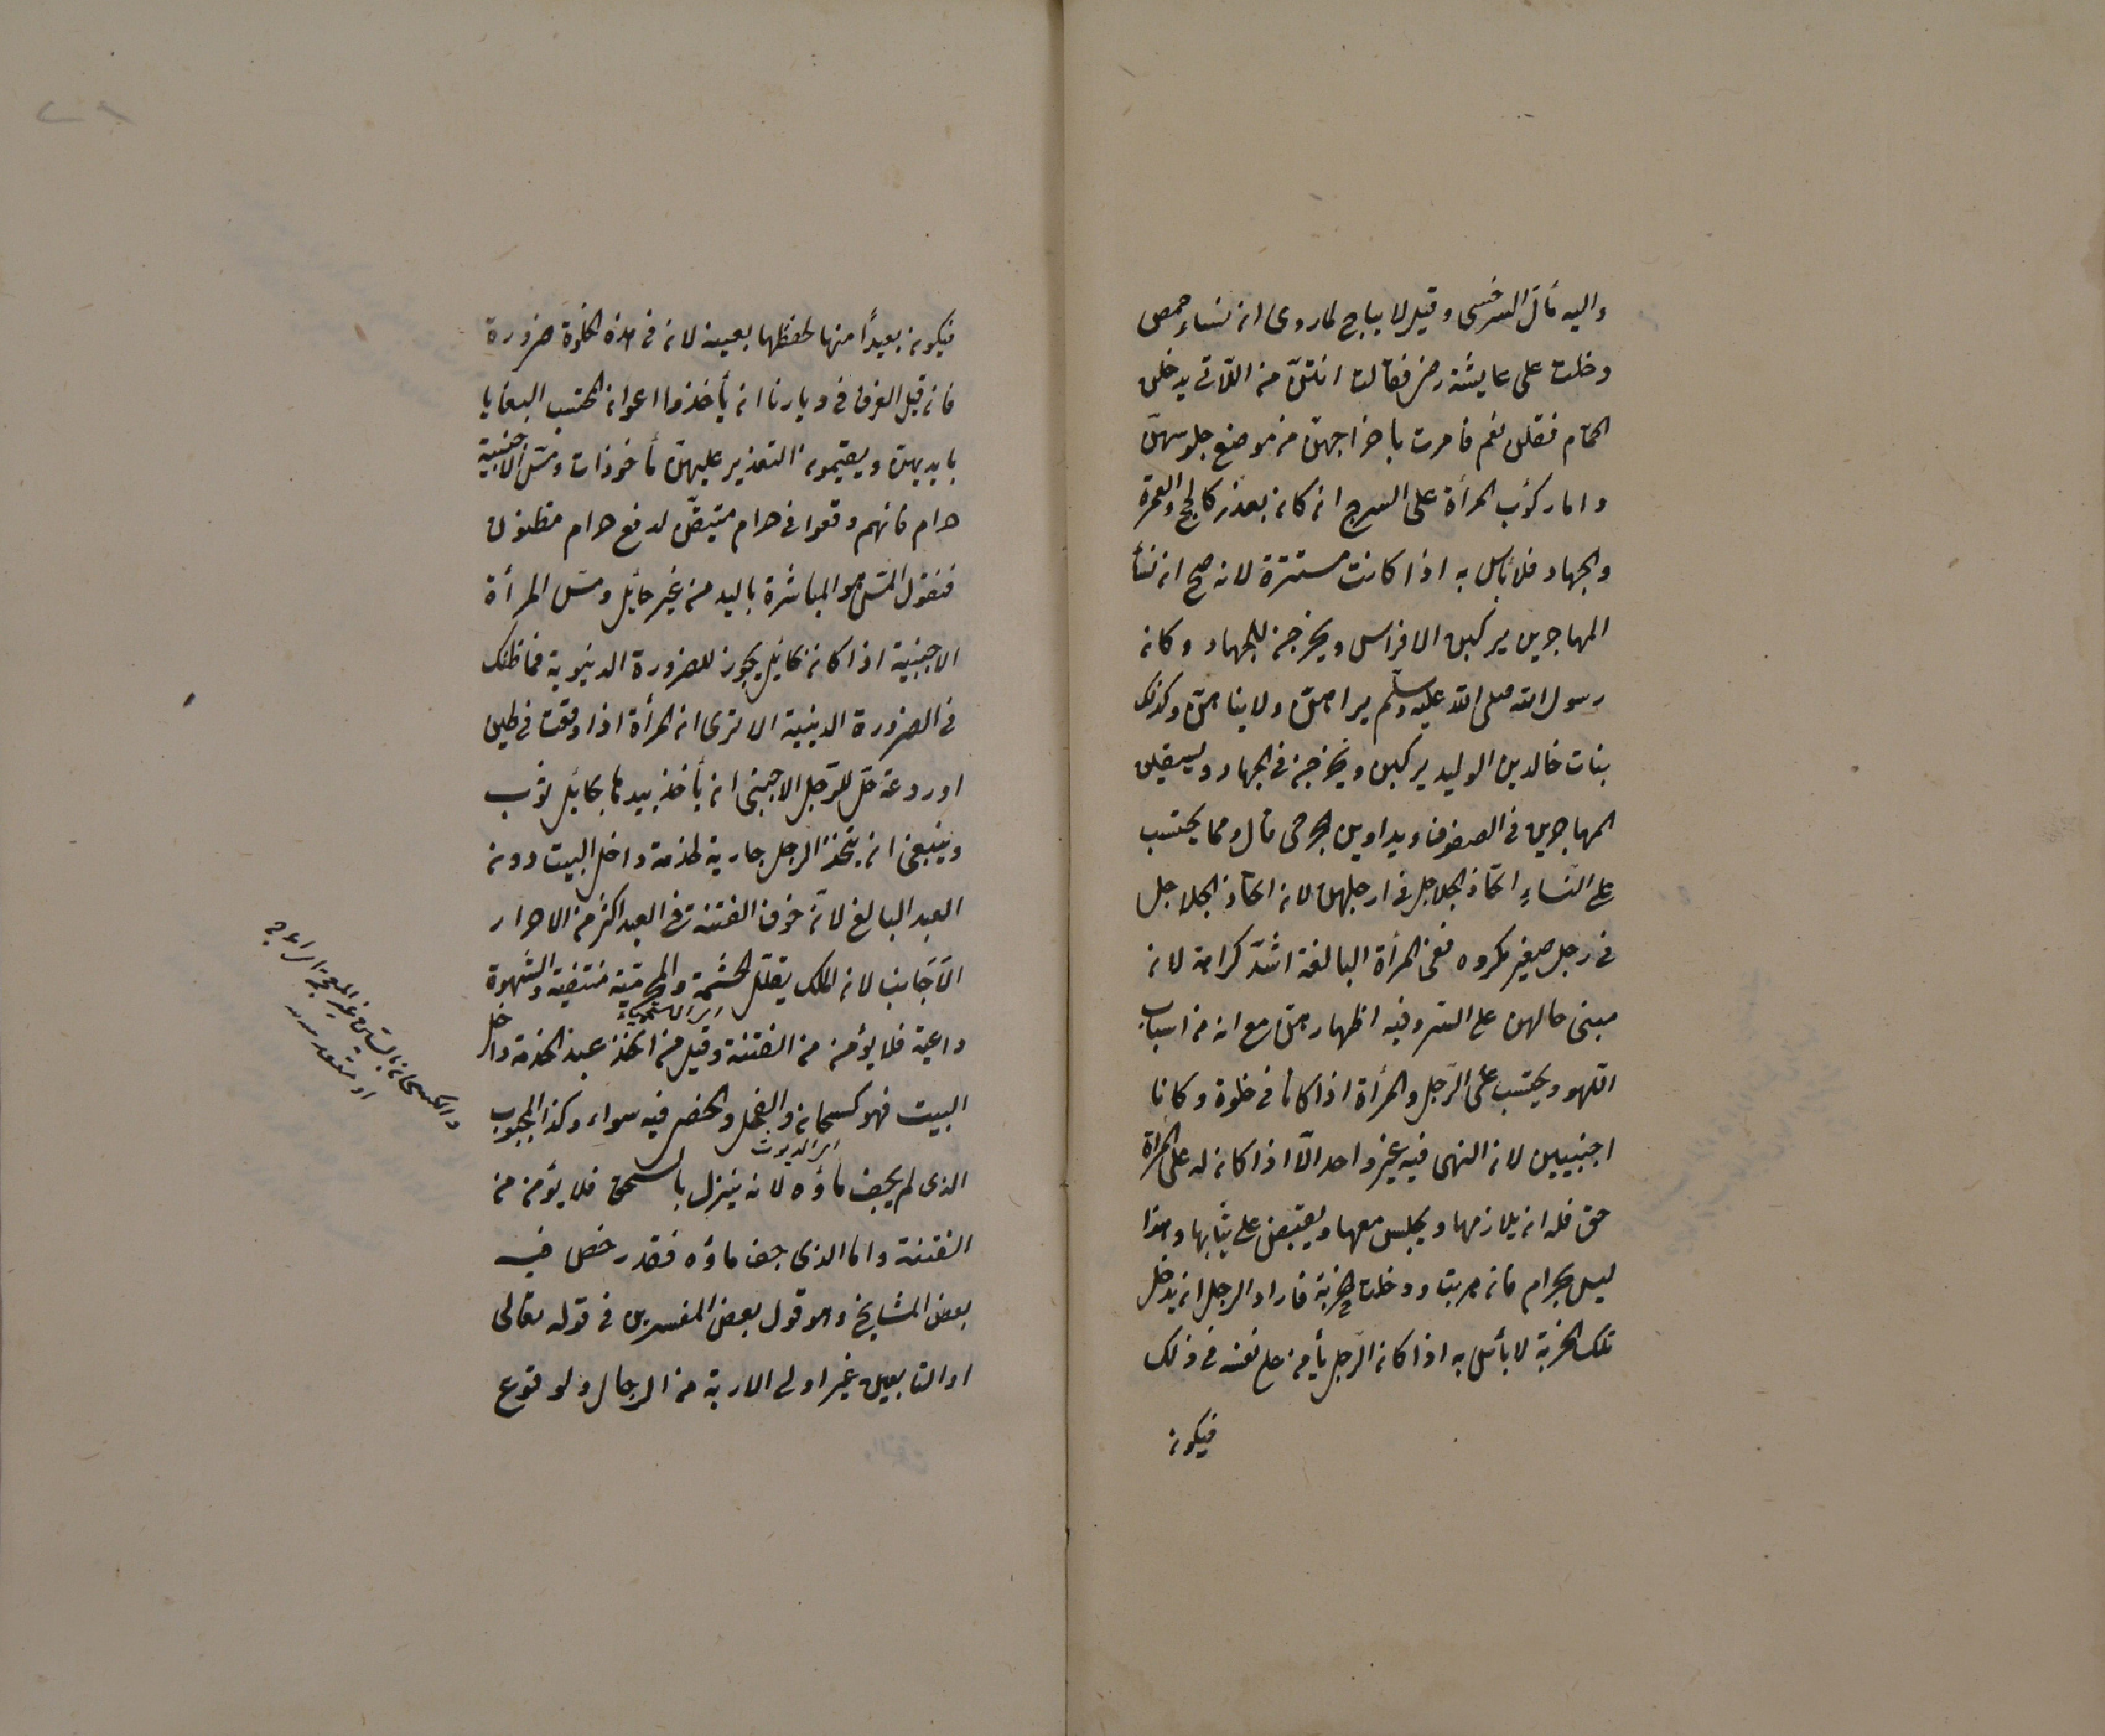 واليه مال السرخسى وقيل لا يباح لما روى ان نساء حمص
دخلت على عايشة رضـ فقالت انتنّ من اللاتى يدخلن
الحمّام فقلن نعم فامرت باخراجهنّ من موضع جلوسهنّ
واما ركوب المرأة على السرج ان كان بعذر كالحج والعمرة
والجهاد فلا بأس به اذا كانت مستترة لانه صح ان نسأ
المهاجرين يركبن الافراس ويخرجن للجهاد وكان
رسول الله صلى الله عليه وسلّم يراهنّ ولا ينهاهنّ وكذلك
بنات خالد بن الوليد يركبن ويخرجن فى الجهاد ويسقين
المهاجرين فى الصفوف ويداوين الجرحى قال ومما يحتسب
على النّساءِ اتخاذ الجلاجل فى ارجلهن لان اتخاذ الجلاجل
فى رجل صغير مكروه ففى المرأة البالغة اشدّ كراهة لانه
مبنى حالهن على الستر وفيه اظهار هنّ مع انه من اسباب
اللهو ويحتسب على الرّجل والمرأة اذا كانا فى خلوة وكانا
اجنبيين لان النهى فيه غير واحد الّا اذا كان له على المرأة
حق فله ان يلازمها ويجلس معها ويقبض على ثيابها وهذا
ليس بحرام فان هربت ودخلت خربة فاراد الرجل ان يدخل
تلك الخربة لا بأس به اذا كان الرّجل يأمن على نفسه فى ذلك
فيكون
فيكون بعيداً منها لحفظها بعينه لان فى هذه الخلوة ضرورة
فان قيل العرف فى ديارنا ان يأخذوا اعوان المحتسب البغايا
بايديهن ويقيمون التعذير عليهن مأخوذات ومسّ الاجنبية
حرام فانهم وقعوا فى حرام متيقّن لدفع حرام مظنون
فنقول المسّ هو المباشرة باليد من غير حائل ومسّ المرأة
الاجنبية اذا كان بحائل يجوز للضرورة الدنيوية فما ظنك
فى الضرورة الدينية الا ترى ان المرأة اذا وقعت فى طين
او ردعة حلّ للرّجل الاجنبى ان يأخذ بيدها بحائل ثوب
وينبغى ان يتخذ الرجل جارية لخدمة داخل البيت دون
العبد البالغ لانّ خوف الفتنة فى العبد اكثر من الاحرار
الاَجَانب لان الملك يقلّل الحشمة والمحرمية منتفية والشهوة
داعية فلا يؤمن من الفتنة وقيل من اتخذ عبد الخدمة داخل
البيت فهو كسحان والفحل والخصى فيه سواء وكذا المجبوب
اى الديوث
الذى لم يجف ماؤه لانه ينزل بالسحق فلا يؤمن من
الفتنة واما الذى جف ماؤه فقد رخص فيه
بعض المشايخ وهو قول بعض المفسرين فى قوله تعالى
او التابعين غير اولى الاربة من الرجال ولوقوع
والكسحان بالسين غير المعجمة الاعرج
او مقعد